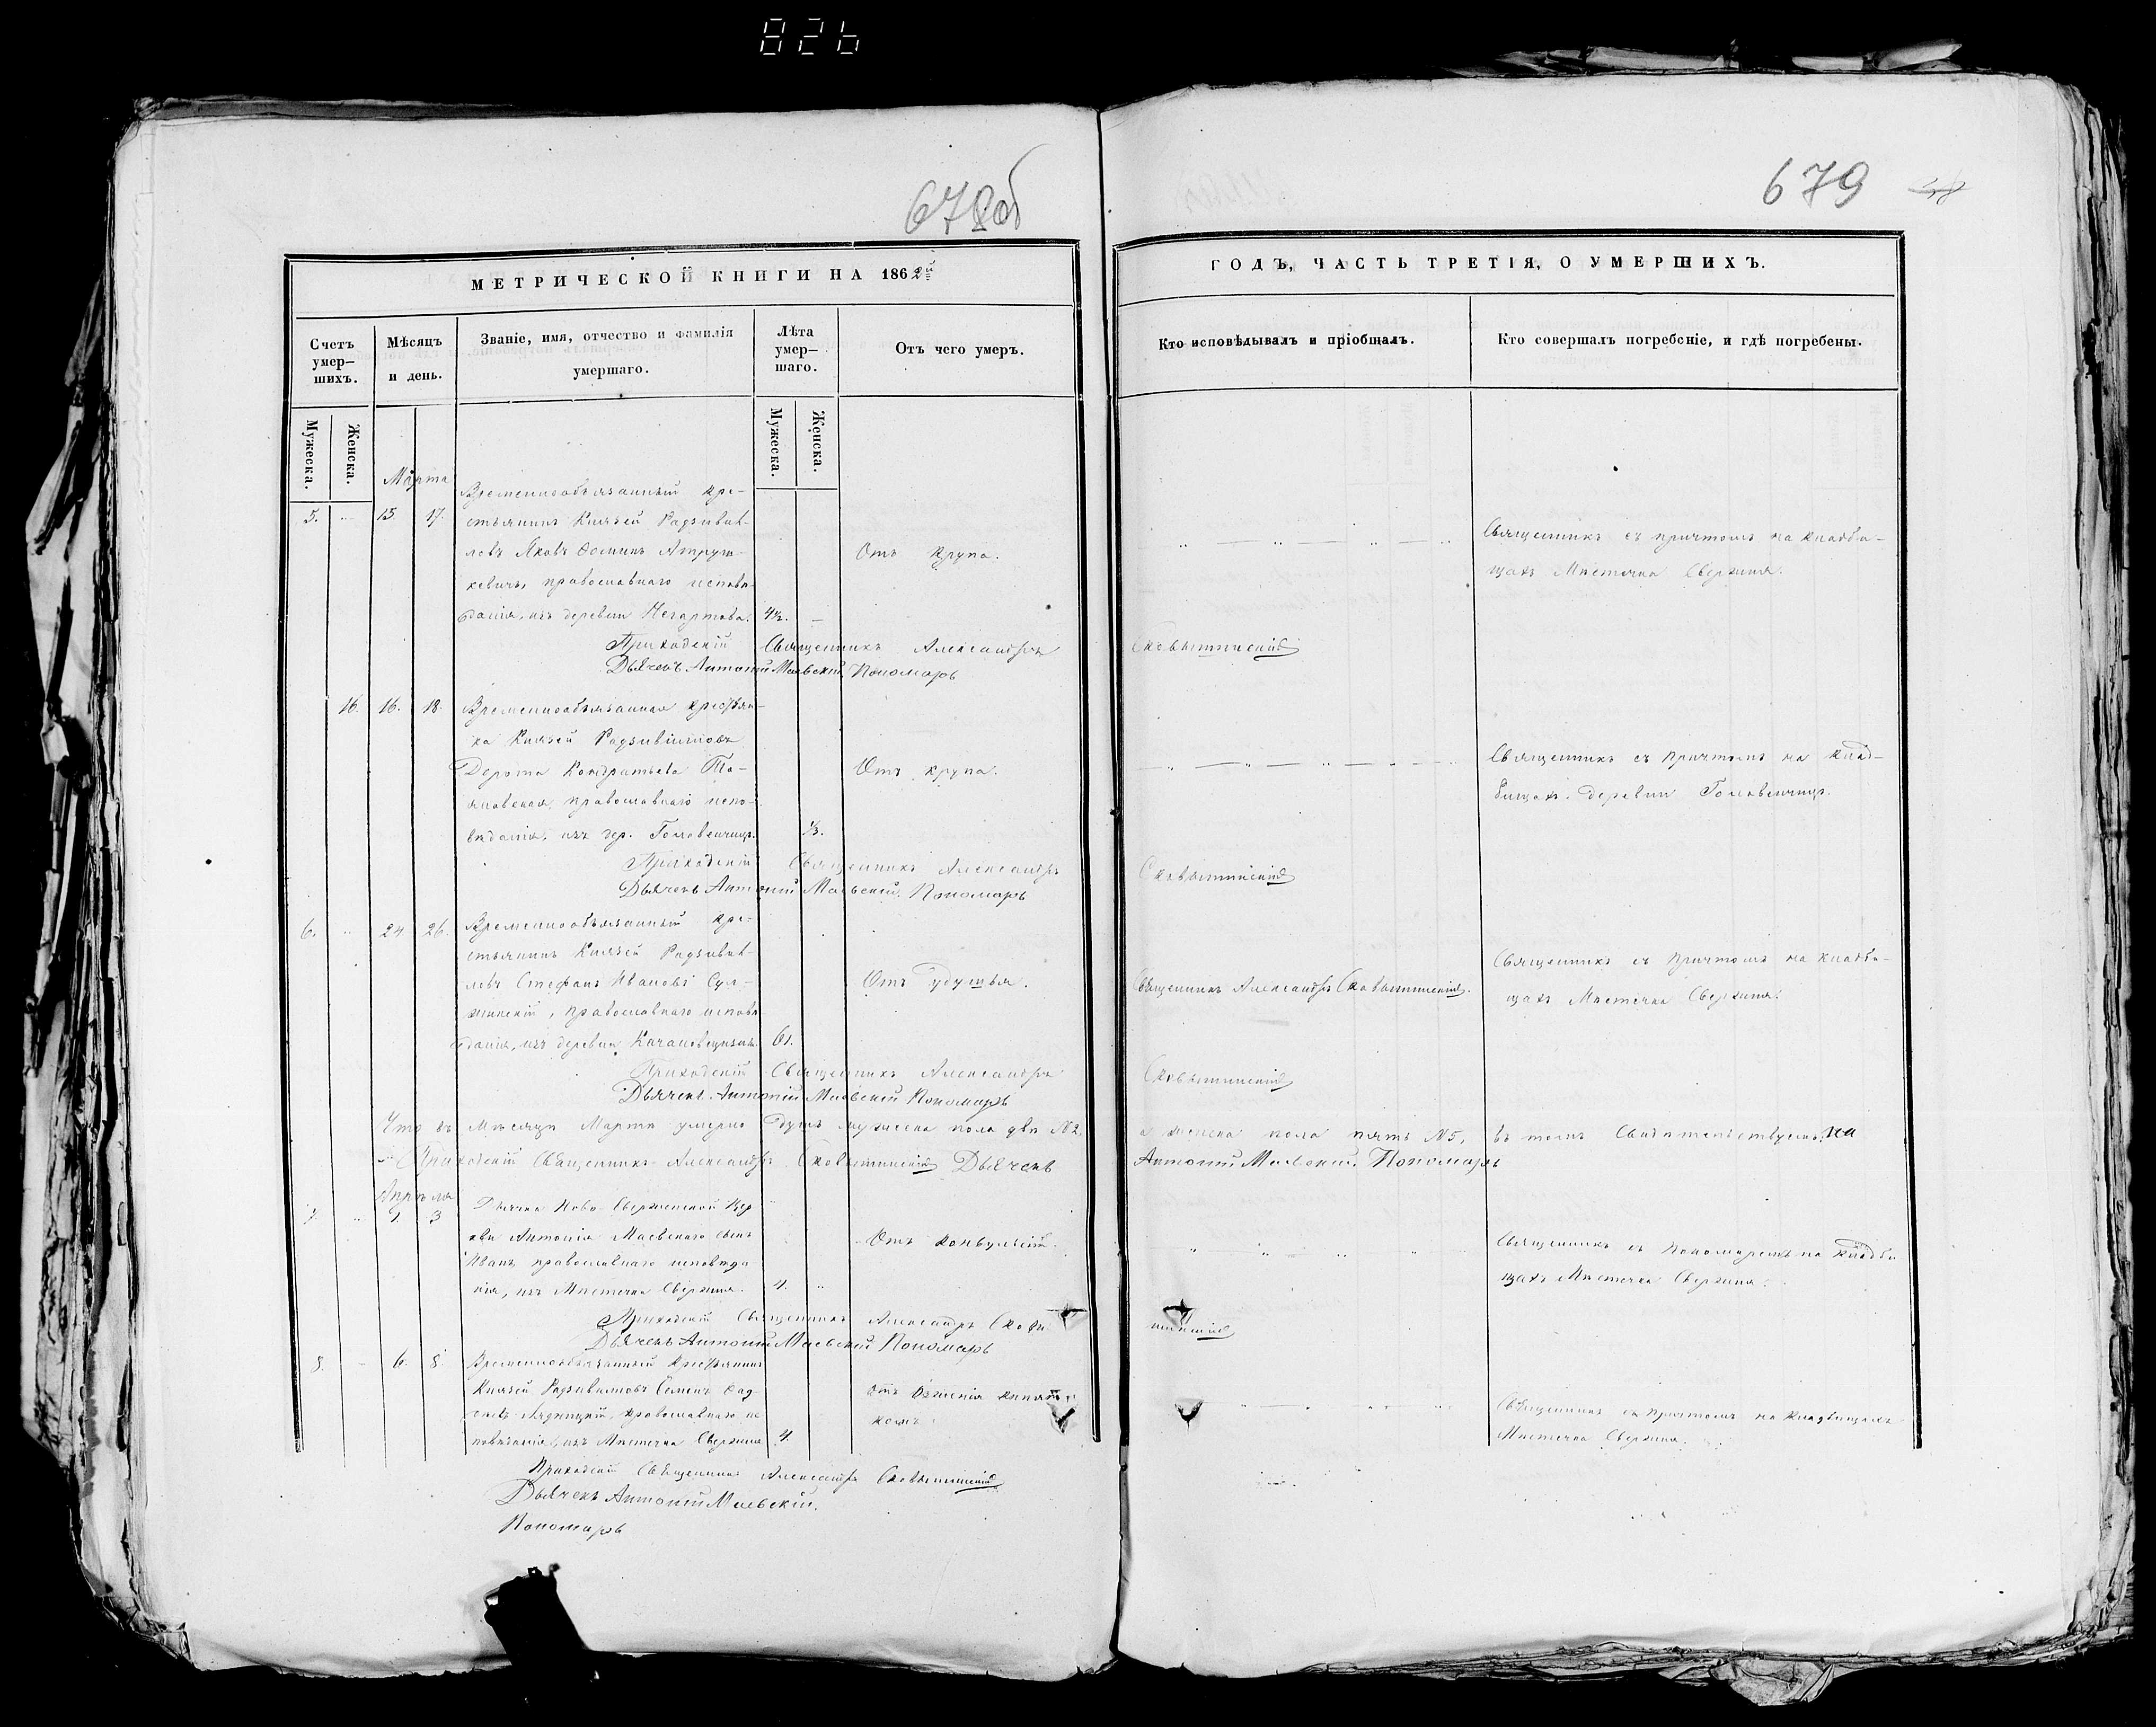 826
678об
679
МЕТРИЧЕСКОЙ КНИГИ НА 1862й
ГОДЪ, ЧАСТЬ ТРЕТІЯ, О УМЕРШИХЪ.
Счетъ умер—шихъ.
Мѣсяцъ и день.
Званіе, имя, отчество и фамилія умершаго.
Лѣта умер—шаго.
Отъ чего умеръ.
Кто исповѣдывалъ и пріобщалъ.
Кто совершалъ погребеніе, и гдѣ погребены.
Мужеска.
Женска.
Мужеска.
Женска.
Марта
5. 15. 17.
Временнообязанный кре-
стьянинъ Князей Радзивил-
ловъ Яковъ Ѳоминъ
православнаго исповѣ-
данія, изъ деревни 4½.
Отъ крупа.
Священникъ съ причтомъ на кладби-
щахъ Мѣстечка Свержня.
Приходскій Священникъ Александръ
Дьячекъ Антоній Маевскій, Пономарь
16. 16. 18.
Временнообязанная крестьян-
ка Князей Радзивилловъ
Дорота Кондратьева
православнаго испо-
вѣданія, изъ дер. ⅓.
Отъ крупа.
Священникъ съ причтомъ на клад-
бищахъ деревни
Приходскій Священникъ Александръ
Дьячекъ Антоній Маевскій, Пономарь
6. 24. 26.
Временнообязанный кре-
стьянинъ Князей Радзивил-
ловъ Стефанъ Ивановъ
православнаго исповѣ-
данія, изъ деревни 61.
Отъ удушья.
Священникъ Александръ
Священникъ съ причтомъ на кладби-
щахъ Мѣстечка Свержня.
Приходскій Священникъ Александръ
Дьячекъ Антоній Маевскій Пономарь
Что въ мѣсяцѣ Мартѣ умерло душъ мужеска пола двѣ №2, а женска пола пять №5, въ томъ свидѣтельствуемъ.
Приходскій Священникъ Александръ Дьячекъ Антоній Маевскій. Пономарь
Апрѣля
7. 1. 3
Дьячка Ново-Сверженской Цер-
кви Антонія Маевскаго сынъ
Иванъ православнаго исповѣда-
нія, изъ Мѣстечка Свержня. 4.
Отъ конвульсій.
Священникъ съ Пономаремъ на кладби-
щахъ Мѣстечка Свержня.
Приходскій Священникъ Александръ
Дьячекъ Антоній Маевскій Пономарь
8. 6. 8.
Временнообязанный Крестьянинъ
Князей Радзивилловъ Семенъ
православнаго ис-
повѣданія, изъ Мѣстечка Свержня 4.
Отъ кипят-
комъ.
Священникъ съ причтомъ на кладбищахъ
Мѣстечка Свержня.
Приходскій Священникъ Александръ
Дьячекъ Антоній Маевскій.
Пономарь